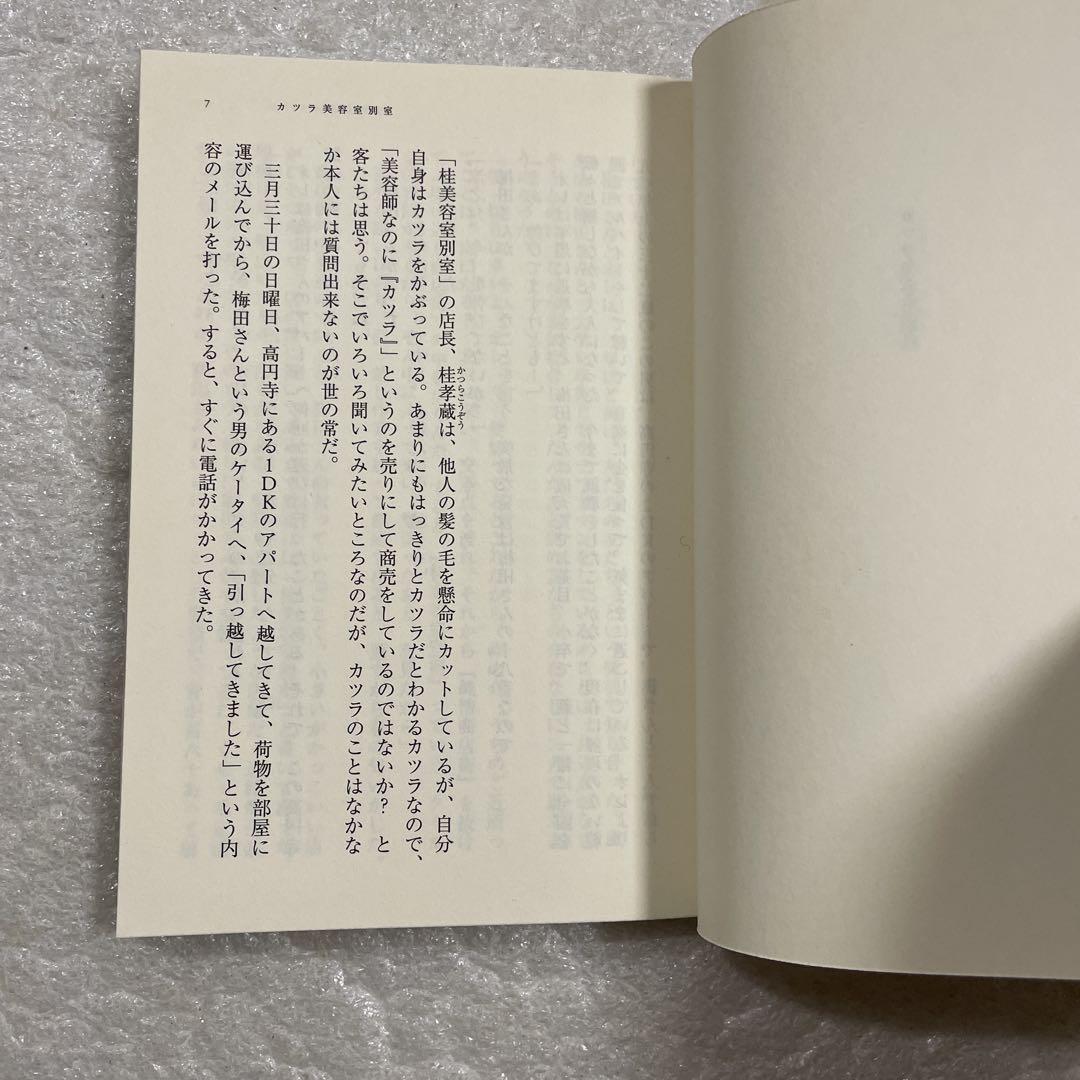 7
カツラ美容室別室
「桂美容室別室」の店長、桂孝蔵は、他人の髪の毛を懸命にカットしているが、自分
かつらこうぞう
自身はカツラをかぶっている。あまりにもはっきりとカツラだとわかるカツラなので、
「美容師なのに『カツラ』」というのを売りにして商売をしているのではないか？　と
客たちは思う。そこでいろいろ聞いてみたいところなのだが、カツラのことはなかな
か本人には質問出来ないのが世の常だ。
三月三十日の日曜日、高円寺にある1DKのアパートへ越してきて、荷物を部屋に
運び込んでから、梅田さんという男のケータイへ、「引っ越してきました」という内
容のメールを打った。すると、すぐに電話がかかってきた。